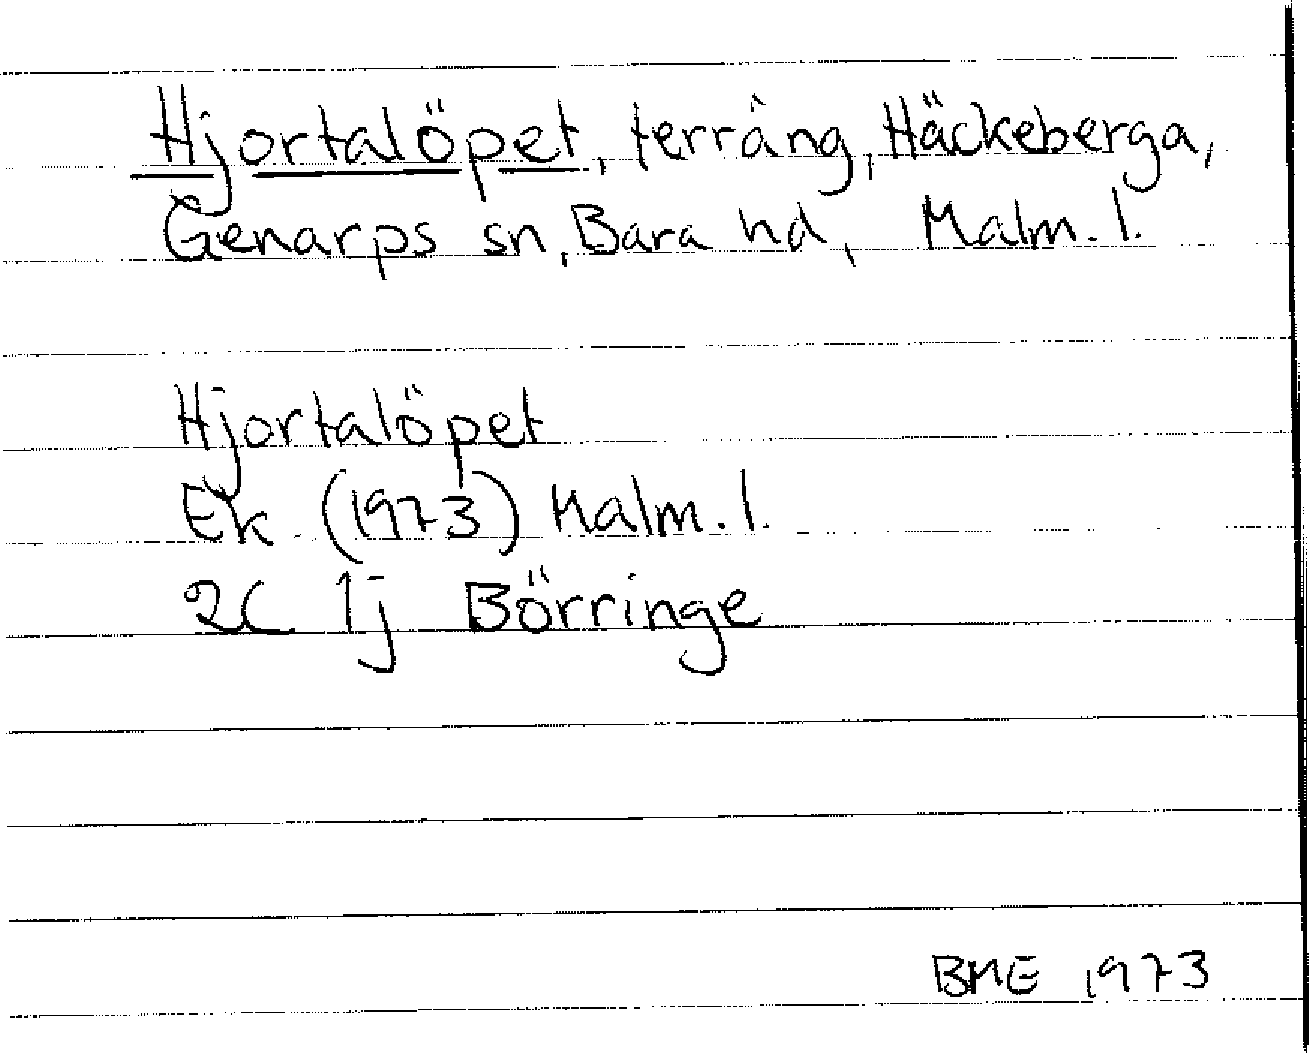 Hjortalöpet, terräng, Häckeberga,
Genarps sn, Bara hd, Malm. l.
Hjortalöpet
Ek (1973) Malm. l.
2C 1j Börringe
BME 1973